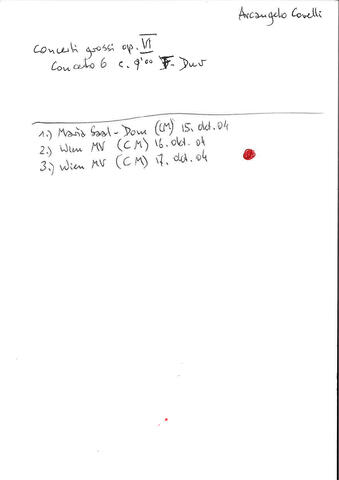 Arcangelo Corelli
Concerti grossi op. VI
Concerto 6 c. 9'00 F-Dur
1.) Maria Saal-Dom (CM) 15. Okt. 04
2.) Wien MV (CM) 16. Okt. 04
3.) Wien MV (CM) 17. Okt. 04